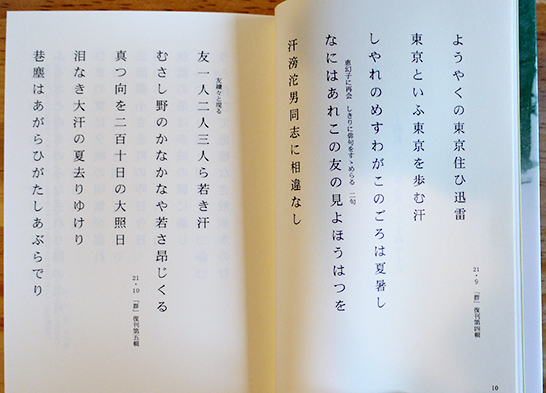 ようやくの東京住ひ迅雷
21・9 『群』復刊第四輯
東京といふ東京を歩む汗
しやれのめすわがこのごろは夏暑し
恵幻子に再会 しきりに俳句をすゝめらる 二句
なにはあれこの友の見よほうはつを
汗滂沱男同志に相違なし
10
友続々と現る
友一人二人三人ら若き汗
むさし野のかなかなや若さ昂じくる
真つ向を二百十日の大照日
21・10 『群』復刊第五輯
泪なき大汗の夏去りゆけり
巷塵はあがらひがたしあぶらでり